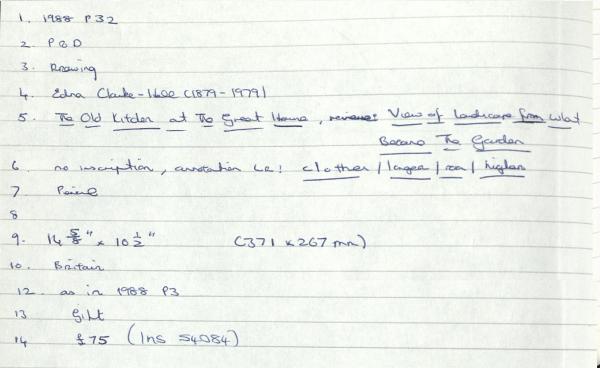 1. 1988 P32
2. P&D
3. Drawing
4. Edna Clarke-Hall (1879-1979)
5. The Old Kitchen at The Great House, reverse: View of landscape from what
Became The Garden
6. no inscription, annotation i.e: clother / larger / / higher
7 Pencil
8
9. 14 5/8" x 10 1/2" (371 x 267 mm)
10. Britain
12. as in 1988 P3
13 Gift
14 £75 (Ins 54084)